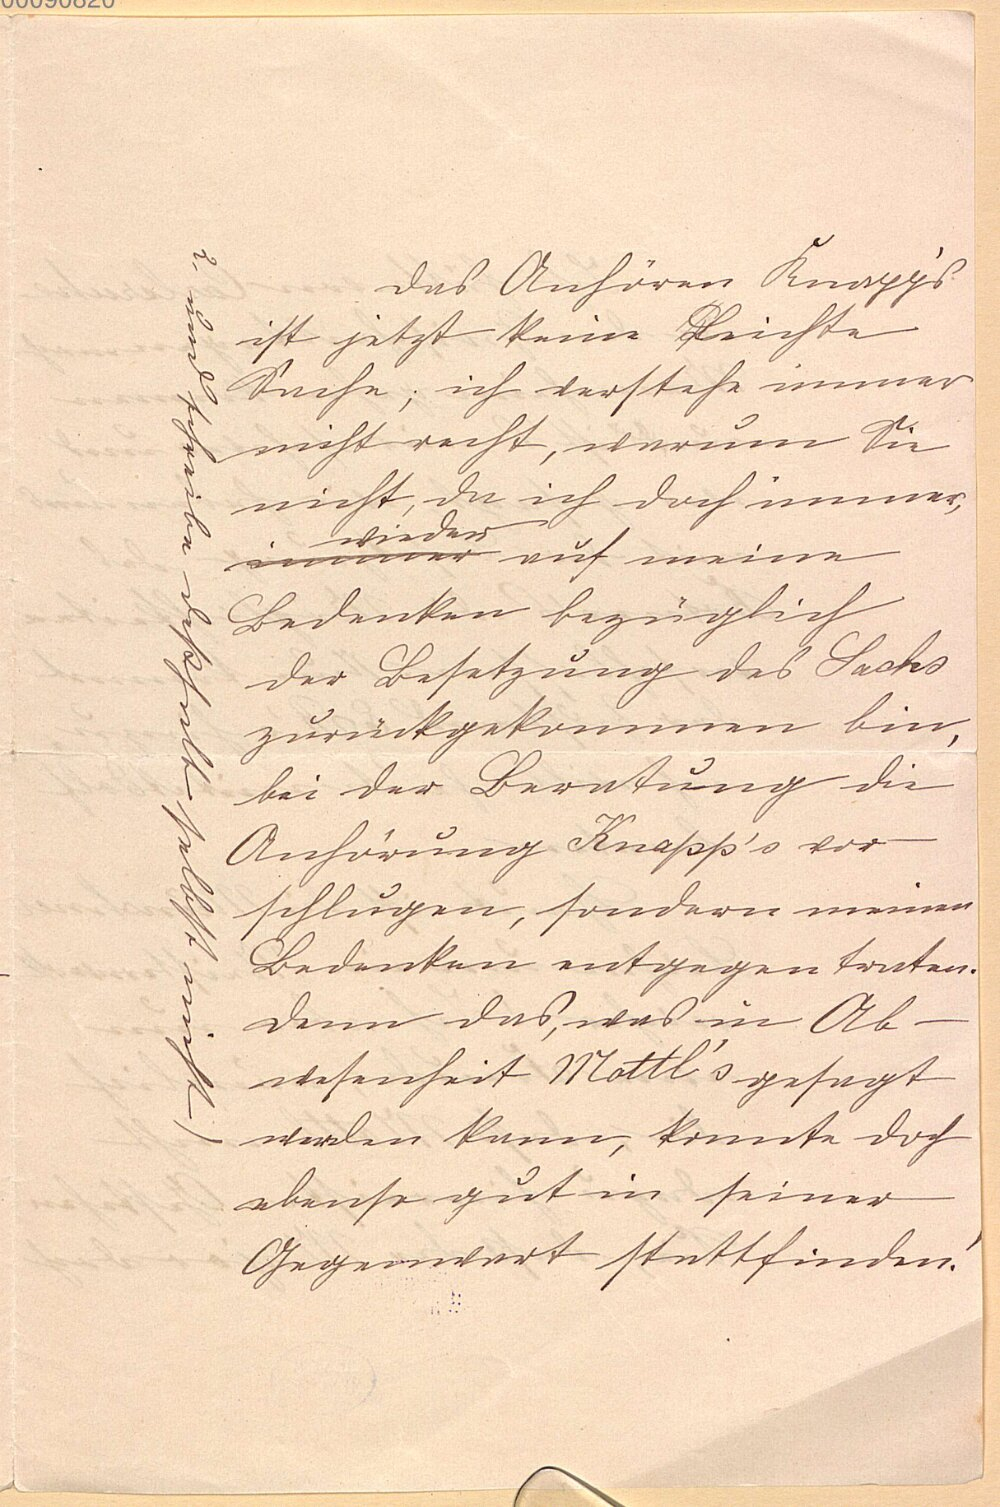 00090820
Das Anhören Knapp's
ist jetzt keine leichte
Sache; ich verstehe immer
nicht recht, warum Sie
nicht, da ich doch immer,
wieder
immer auf meine
Bedenken bezüglich
der Besetzung des Sachs
zurückgekommen bin,
bei der Beratung die
Anhörung Knapp's vor-
schlugen, sondern meinen
Bedenken entgegen traten.
Denn das, was in Ab-
wesenheit Mottl's gesagt
werden kann, konnte doch
ebenso gut in seiner
Gegenwart stattfinden!
und schreibe deßhalb selbst nicht)